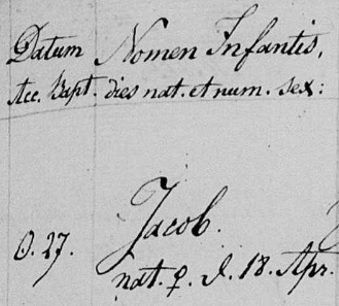 Datum Nomen Infantis,
Acc. Bapt. dies nat. et num. sex:
Jacob.
D. 27.
nat. ♀. d. 18. Apr.